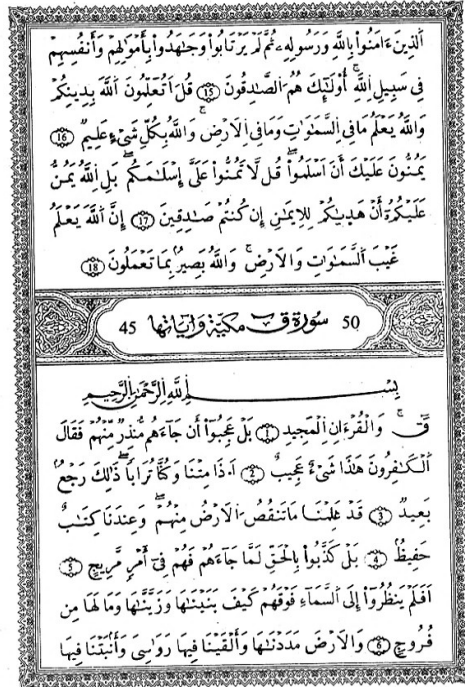 الذِينَ ءَامَنُواْ بِاللَّهِ وَرَسُولِهِ ثُمَّ لَمْ يَرْتَابُواْ وَجَٰهَدُواْ بِأَمْوَٰلِهِمْ وَأَنفُسِهِمْ
فِى سَبِيلِ اِللَّهِ أُوْلَٰٓئِكَ هُمُ الصَّٰدِقُونَ 15 قُلَ اَتُعَلِّمُونَ اَللَّهَ بِدِينِكُمْ
وَاللَّهُ يَعْلَمُ مَا فِى اِلسَّمَٰوَٰتِ وَمَا فِى اِلَارْضِ وَاللَّهُ بِكُلِّ شَىْءٍ عَلِيمٌ 16
يَمُنُّونَ عَلَيْكَ أَنَ اَسْلَمُواْ قُل لَّا تَمُنُّواْ عَلَىَّ إِسْلَٰمَكُم بَلِ اِللَّهُ يَمُنُّ
عَلَيْكُمُۥ أَنْ هَدٰيكُمْ لِلِايمَٰنِ إِن كُنتُمْ صَٰدِقِينَ 17 إِنَّ اَللَّهَ يَعْلَمُ
غَيْبَ اَلسَّمَٰوَٰتِ وَالَارْضِ وَاللَّهُ بَصِيرٌ بِمَا تَعْمَلُونَ 18
50 سورة ق مكية وءاياتها 45
بِسْمِ اِللَّهِ اِلرَّحْمَٰنِ اِلرَّحِيمِ
قَ وَالْقُرْءَانِ اِلْمَجِيدِ 1 بَلْ عَجِبُوٓاْ أَن جَآءَهُم مُّنذِرٌ مِّنْهُمْ فَقَالَ
اَلْكَٰفِرُونَ هَٰذَا شَىْءٌ عَجِيبٌ 2 اَ۟ذَا مِتْنَا وَكُنَّا تُرَاباً ذَٰلِكَ رَجْعٌ
بَعِيدٌ 3 قَدْ عَلِمْنَا مَا تَنقُصُ اُلَارْضُ مِنْهُمْ وَعِندَنَا كِتَٰبٌ
حَفِيظٌ 4 بَلْ كَذَّبُواْ بِالْحَقِّ لَمَّا جَآءَهُمْ فَهُمْ فِىٓ أَمْرٍ مَّرِيجٍ 5
اَفَلَمْ يَنظُرُوٓاْ إِلَى اَلسَّمَآءِ فَوْقَهُمْ كَيْفَ بَنَيْنَٰهَا وَزَيَّنَّٰهَا وَمَا لَهَا مِن
فُرُوجٍ 6 وَالَارْضَ مَدَدْنَٰهَا وَأَلْقَيْنَا فِيهَا رَوَٰسِىَ وَأَنۢبَتْنَا فِيهَا